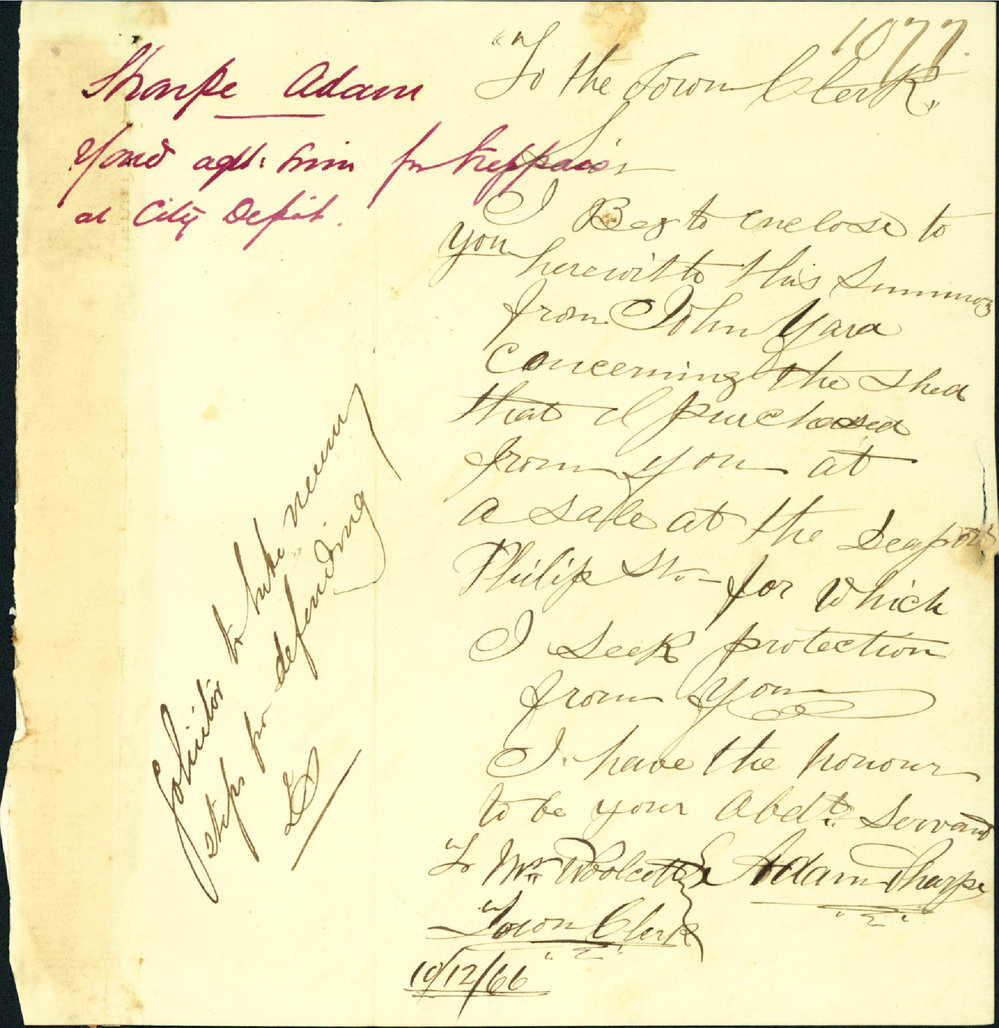 1077.
Sharpe Adam
for
at City Depôt.
"To the Town Clerk,
Sir
I Beg to enclose to
you herewith this Summons
from John Yara
concerning the shed
that I purchased
from you at
a sale at the
Philip St. - for which
I seek protection
from you
I have the honour
to be your Obdt. Servant
Adam Sharpe
To Mr Woolcott
Town Clerk
10/12/66
Solicitor to take
steps for defending